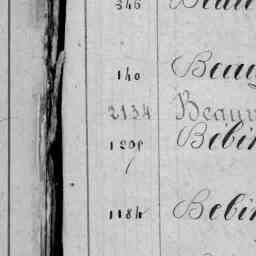 346 Beau
140 Beau
2134 Beauv
1205 Bebin
1184 Bebin